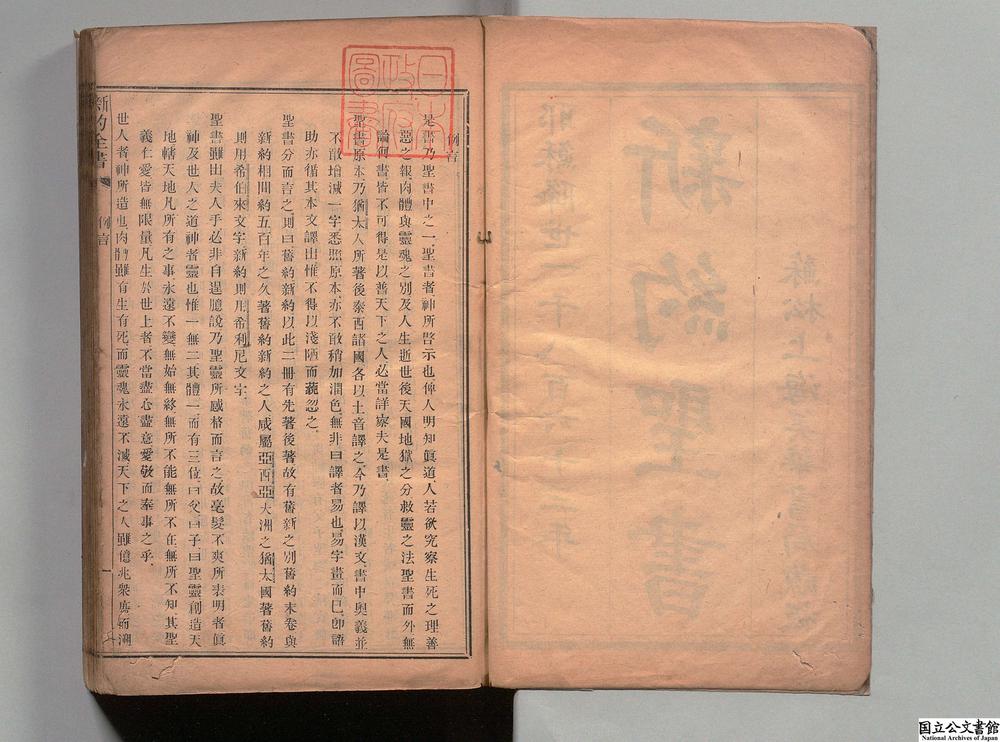 蘇松上海美華書局藏板
新約聖書
耶穌降世一千八百六十三年
日本
政府
圖書
例言
是書乃聖書中之一聖書者神所啓示也俾人明知眞道人若欲究察生死之理善
惡之報肉體與靈魂之別及人生逝世後天國地獄之分救靈之法聖書而外無
論何書皆不可得是以普天下之人必當詳察夫是書
聖書原本乃猶太人所著後泰西諸國各以土音譯之今乃譯以漢文書中奧義並
不敢增減一字悉照原本亦不敢稍加潤色無非曰譯者易也易字畫而已卽語
助亦循其本文譯出惟不得以淺陋而藐忽之
聖書分而言之則曰舊約新約以此二冊有先著後著故有舊新之別舊約末卷與
新約相間約五百年之久著舊約新約之人咸屬亞西亞大洲之猶太國著舊約
則用希伯來文字新約則用希利尼文字
聖書雖出夫人手必非自逞臆說乃聖靈所感格而言之故毫髮不爽所表明者眞
神及世人之道神者靈也惟一無二其體一而有三位曰父曰子曰聖靈創造天
地轄天地凡所有之事永遠不變無始無終無所不能無所不在無所不知其聖
義仁愛皆無限量凡生於世上者不當盡心盡意愛敬而奉事之乎
世人者神所造也肉體雖有生有死而靈魂永遠不滅天下之人雖億兆衆庶而溯
新約全書
例言
一
国立公文書館
National Archives of Japan